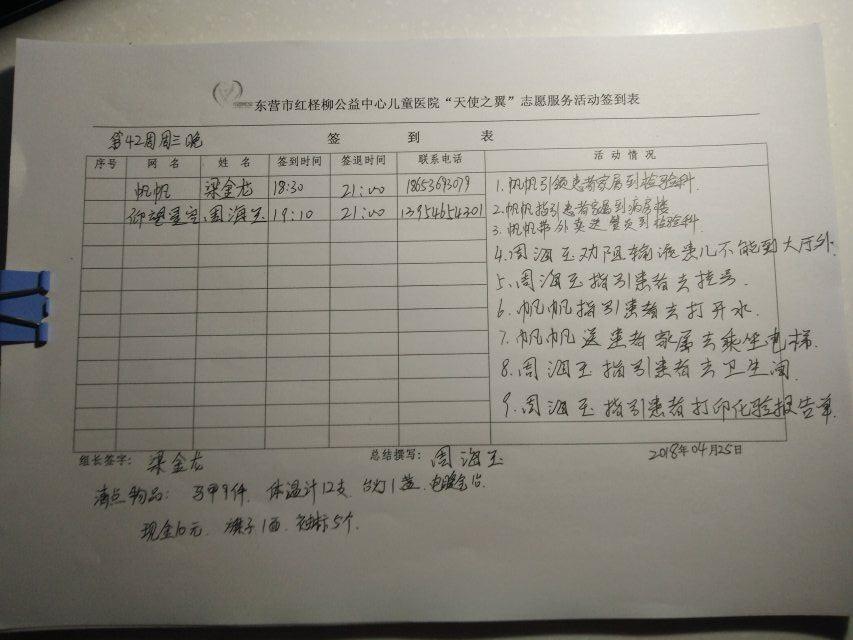 东营市红柽柳公益中心儿童医院“天使之翼”志愿服务活动签到表
第42周周三晚
签 到 表
序号 网 名 姓 名 签到时间 签退时间 联系电话 活 动 情 况
帆帆 梁金龙 18:30 21:00 18653693079
仰望星空 周海玉 19:10 21:00 13954654301
1.帆帆引领患者家属到检验科.
2.帆帆指引患者家属到病房楼
3.帆帆带外卖送餐员到检验科.
4.周海玉劝阻输液患儿不能到大厅外.
5.周海玉指引患者去挂号.
6.帆帆指引患者去打开水.
7.帆帆送患者家属去乘坐电梯.
8.周海玉指引患者去卫生间.
9.周海玉指引患者打印化验报告单.
组长签字: 梁金龙 总结撰写: 周海玉 2018年04月25日
清点物品: 马甲9件 体温计12支. 台灯1盏.
现金10元. 旗子1面. 袖标5个.